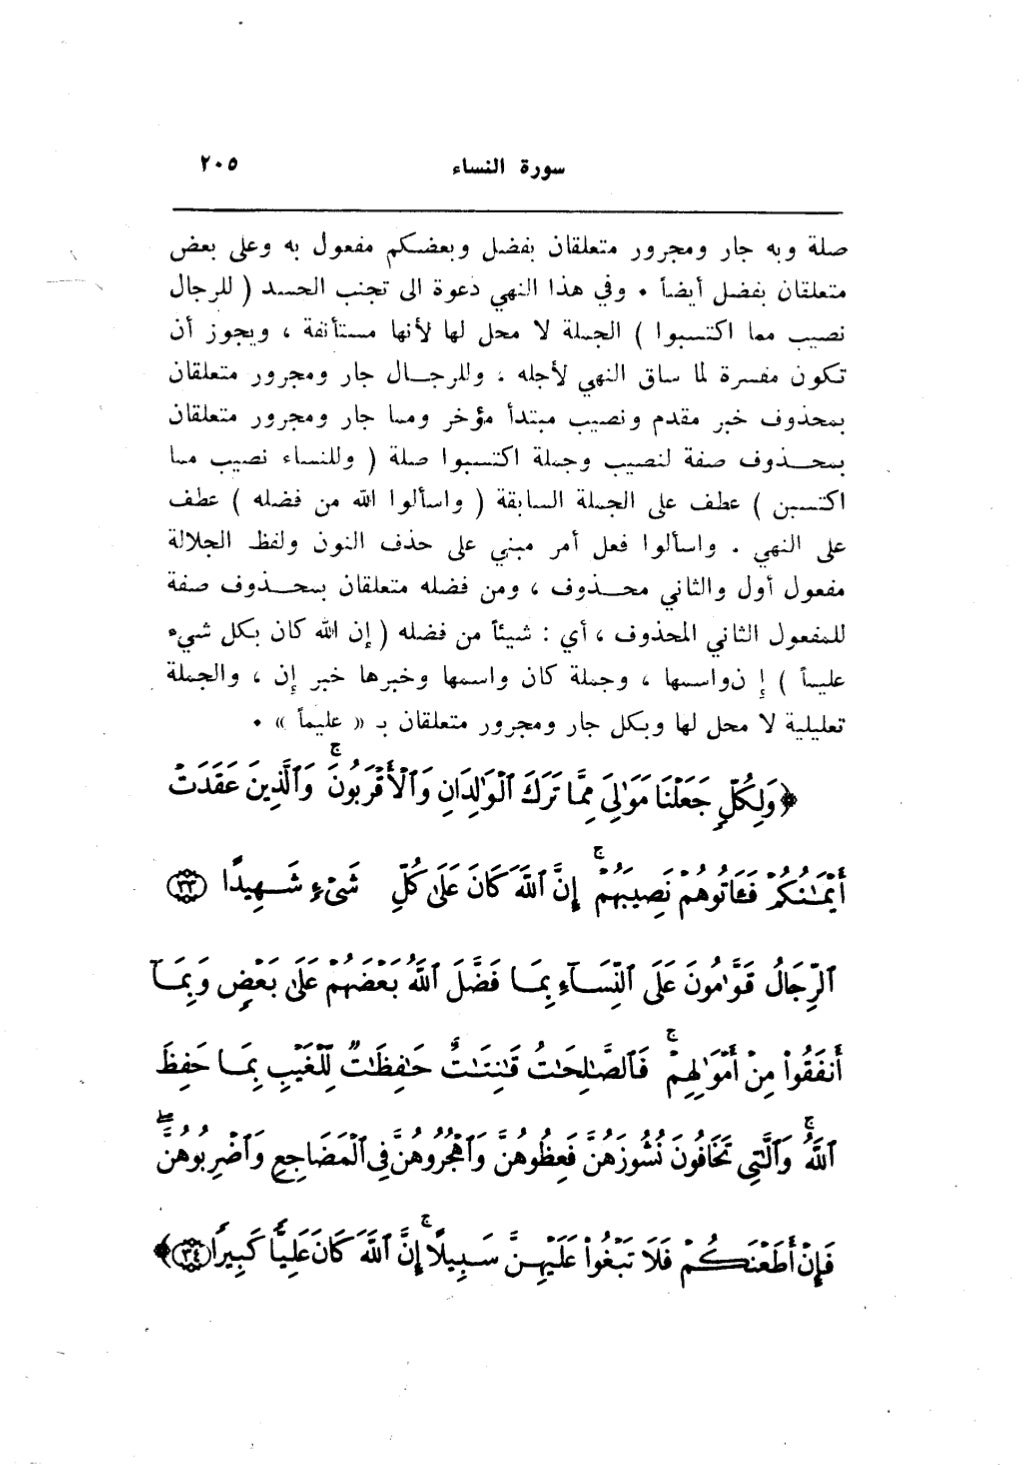 سورة النساء ٢٠٥
صلة وبه جار ومجرور متعلقان بفضل وبعضكم مفعول به وعلى بعض
متعلقان بفضل أيضاً ٠ وفي هذا النهي دعوة الى تجنب الحسد ( للرجال
نصيب مما اكتسبوا ) الجملة لا محل لها لأنها مستأنفة ، ويجوز أن
تكون مفسرة لما ساق النهي لأجله . وللرجـال جار ومجرور متعلقان
بمحذوف خبر مقدم ونصيب مبتدأ مؤخر ومما جار ومجرور متعلقان
بمحـذوف صفة لنصيب وجملة اكتسبوا صلة ( وللنساء نصيب مما
اكتسبن ) عطف على الجملة السابقة ( واسألوا الله من فضله ) عطف
على النهي . واسألوا فعل أمر مبني على حذف النون ولفظ الجلالة
مفعول أول والثاني محـذوف ، ومن فضله متعلقان بمحـذوف صفة
للمفعول الثاني المحذوف ، أي : شيئاً من فضله ( إن الله كان بكل شيء
عليماً ) إن واسمها ، وجملة كان واسمها وخبرها خبر إن ، والجملة
تعليلية لا محل لها وبكل جار ومجرور متعلقان بـ « عليماً » ٠
﴿ وَلِكُلٍّ جَعَلْنَا مَوَٰلِىَ مِمَّا تَرَكَ ٱلْوَٰلِدَانِ وَٱلْأَقْرَبُونَ ۚ وَٱلَّذِينَ عَقَدَتْ
أَيْمَـٰنُكُمْ فَـَٔاتُوهُمْ نَصِيبَهُمْ ۚ إِنَّ ٱللَّهَ كَانَ عَلَىٰ كُلِّ شَىْءٍ شَـهِيدًا ٣٣
ٱلرِّجَالُ قَوَّٰمُونَ عَلَى ٱلنِّسَـآءِ بِمَـا فَضَّلَ ٱللَّهُ بَعْضَهُمْ عَلَىٰ بَعْضٍ وَبِمَـآ
أَنفَقُوا۟ مِنْ أَمْوَٰلِهِمْ ۚ فَٱلصَّـٰلِحَـٰتُ قَـٰنِتَـٰتٌ حَـٰفِظَـٰتٌ لِّلْغَيْبِ بِمَـا حَفِظَ
ٱللَّهُ ۚ وَٱلَّـٰتِى تَخَافُونَ نُشُوزَهُنَّ فَعِظُوهُنَّ وَٱهْجُرُوهُنَّ فِى ٱلْمَضَاجِعِ وَٱضْرِبُوهُنَّ ۖ
فَإِنْ أَطَعْنَكُمْ فَلَا تَبْغُوا۟ عَلَيْهِنَّ سَبِيلًا ۚ إِنَّ ٱللَّهَ كَانَ عَلِيًّا كَبِيرًا ٣٤ ﴾